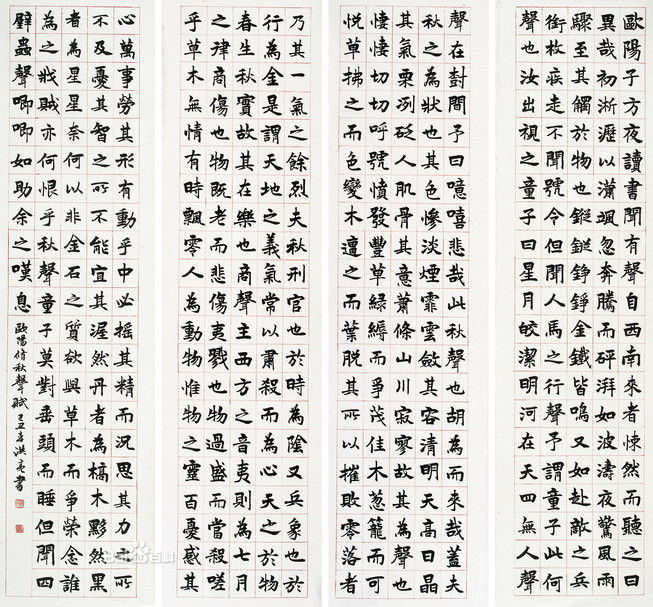 歐陽子方夜讀書聞有聲自西南來者悚然而聽之曰
異哉初淅瀝以瀟颯忽奔騰而砰湃如波濤夜驚風雨
驟至其觸於物也鏦鏦錚錚金鐵皆鳴又如赴敵之兵
銜枚疾走不聞號令但聞人馬之行聲予謂童子此何
聲也汝出視之童子曰星月皎潔明河在天四無人聲
聲在尌間予曰噫嘻悲哉此秋聲也胡為而來哉蓋夫
秋之為狀也其色慘淡煙霏雲斂其容清明天高日晶
其氣栗冽砭人肌骨其意蕭條山川寂寥故其為聲也
悽悽切切呼號憤發豐草綠縟而爭茂佳木蔥籠而可
悅草拂之而色變木遭之而葉脫其所以摧敗零落者
乃其一氣之餘烈夫秋刑官也於時為陰又兵象也於
行為金是謂天地之義氣常以肅殺而為心天之於物
春生秋實故其在樂也商聲主西方之音夷則為七月
之律商傷也物既老而悲傷夷戮也物過盛而當殺嗟
乎草木無情有時飄零人為動物惟物之靈百憂感其
心萬事勞其形有動乎中必搖其精而況思其力之所
不及憂其智之所不能宜其渥然丹者為槁木黟然黑
者為星星奈何以非金石之質欲與草木而爭榮念誰
為之戕賊亦何恨乎秋聲童子莫對垂頭而睡但聞四
壁蟲聲唧唧如助余之嘆息
歐陽脩秋聲賦 己丑 書
百科